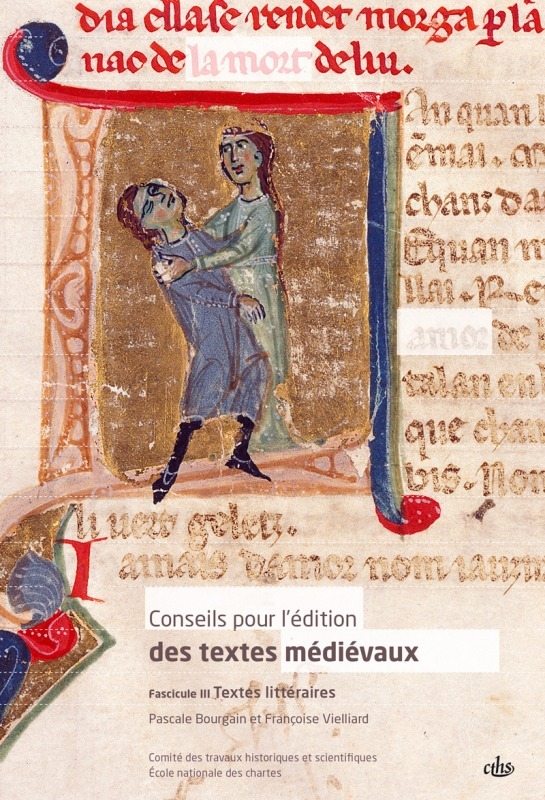 dia ellase rendet morga p la
nao de la mort de lui.
An quan
chan
Equan
amor de
que chan
vis. Non
li uers
amais damor nom
Conseils pour l'édition
des textes médiévaux
Fascicule III Textes littéraires
Pascale Bourgain et Françoise Vielliard
Comité des travaux historiques et scientifiques
École nationale des chartes
cths